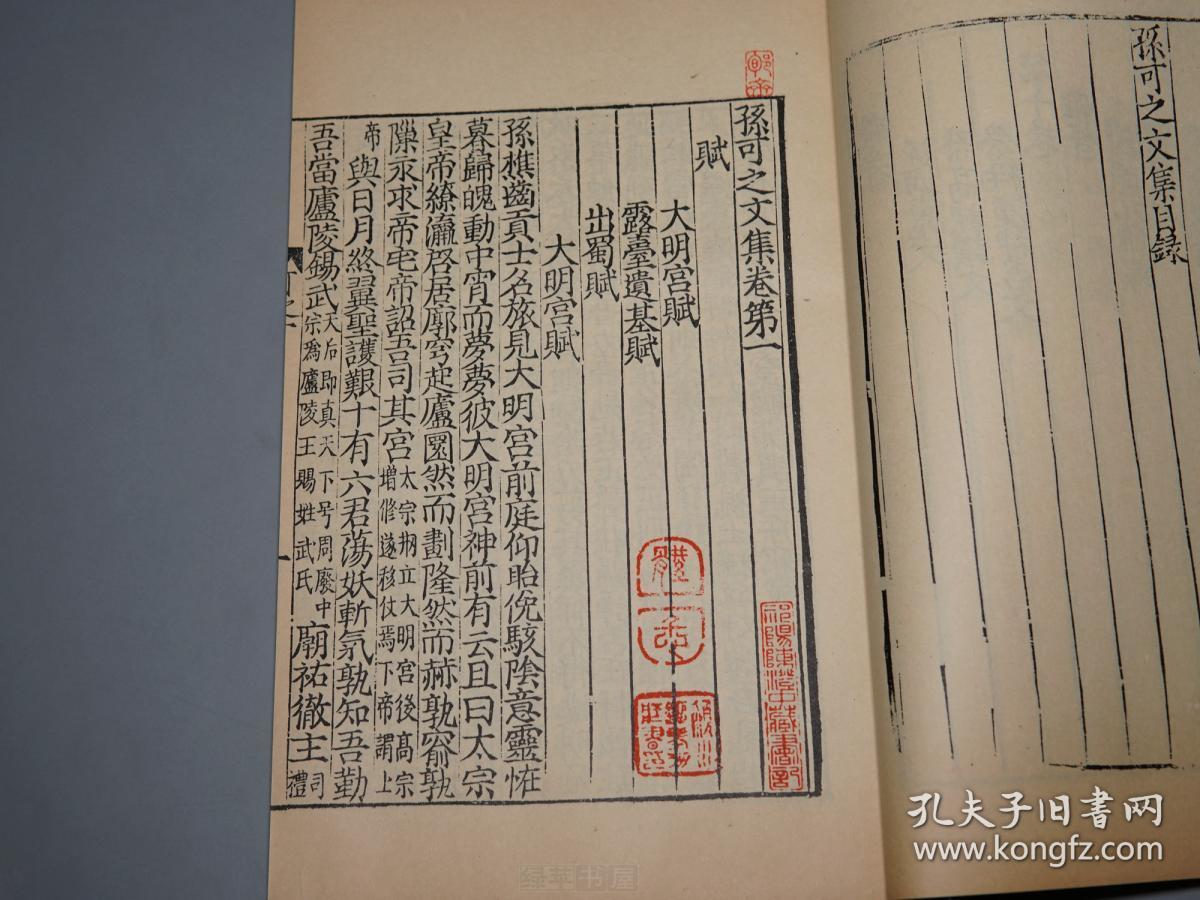 孫可之文集目録
孫可之文集卷第一
賦
大明宫賦
露臺遺基賦
出蜀賦
大明宫賦
孫樵齒貢士名旅見大明宫前庭仰眙俛駭陰意靈怪
暮歸魄動中宵而夢夢彼大明宫神前有云且曰太宗
皇帝繚瀛啓居廓穹起廬圜然而劃隆然而赫孰窬孰
隟永求帝宅帝詔吾司其宫太宗剏立大明宫後高宗
增修遂移仗焉下帝謂上
帝與日月終翼聖護艱十有六君蕩妖斬氛孰知吾勤
吾當廬陵錫武天后即真天下号周廢中
宗為廬陵王賜姓武氏
廟祐徹主司
禮
祁陽陳澄中藏書記
孔夫子旧书网
www.kongfz.com
绿草书屋